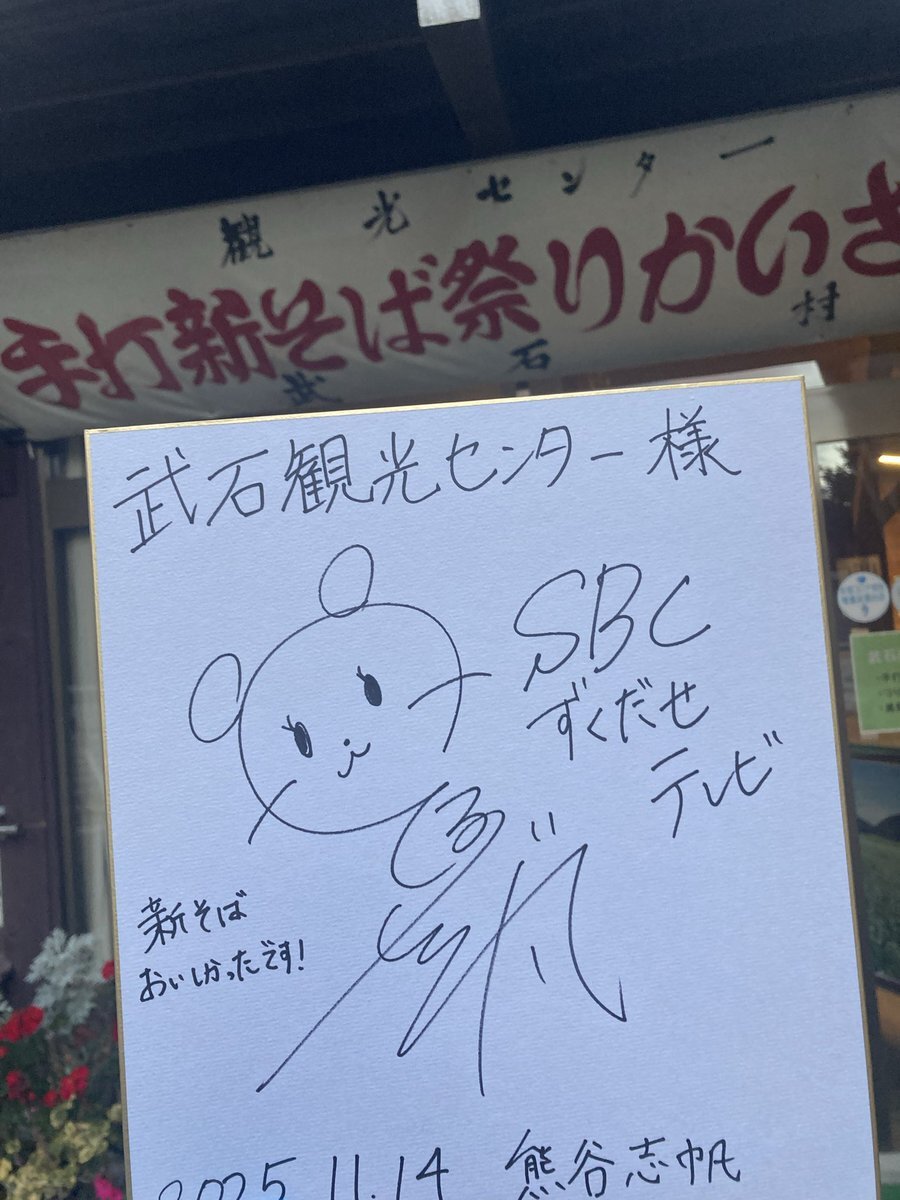 観光センター
手打新そば祭りかいさ
武石村
武石観光センター様
SBC
ずくだせ
テレビ
新そば
おいしかったです!
2025.11.14 熊谷志帆